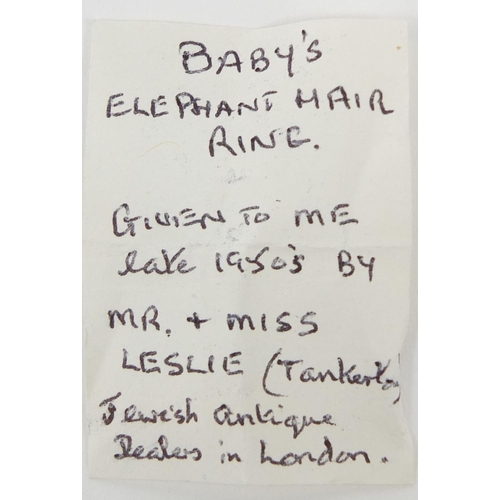 BABY'S
ELEPHANT HAIR
RING.
GIVEN TO ME
late 1950's BY
MR. + MISS
LESLIE (Tankerton)
Jewish antique
Dealers in London.